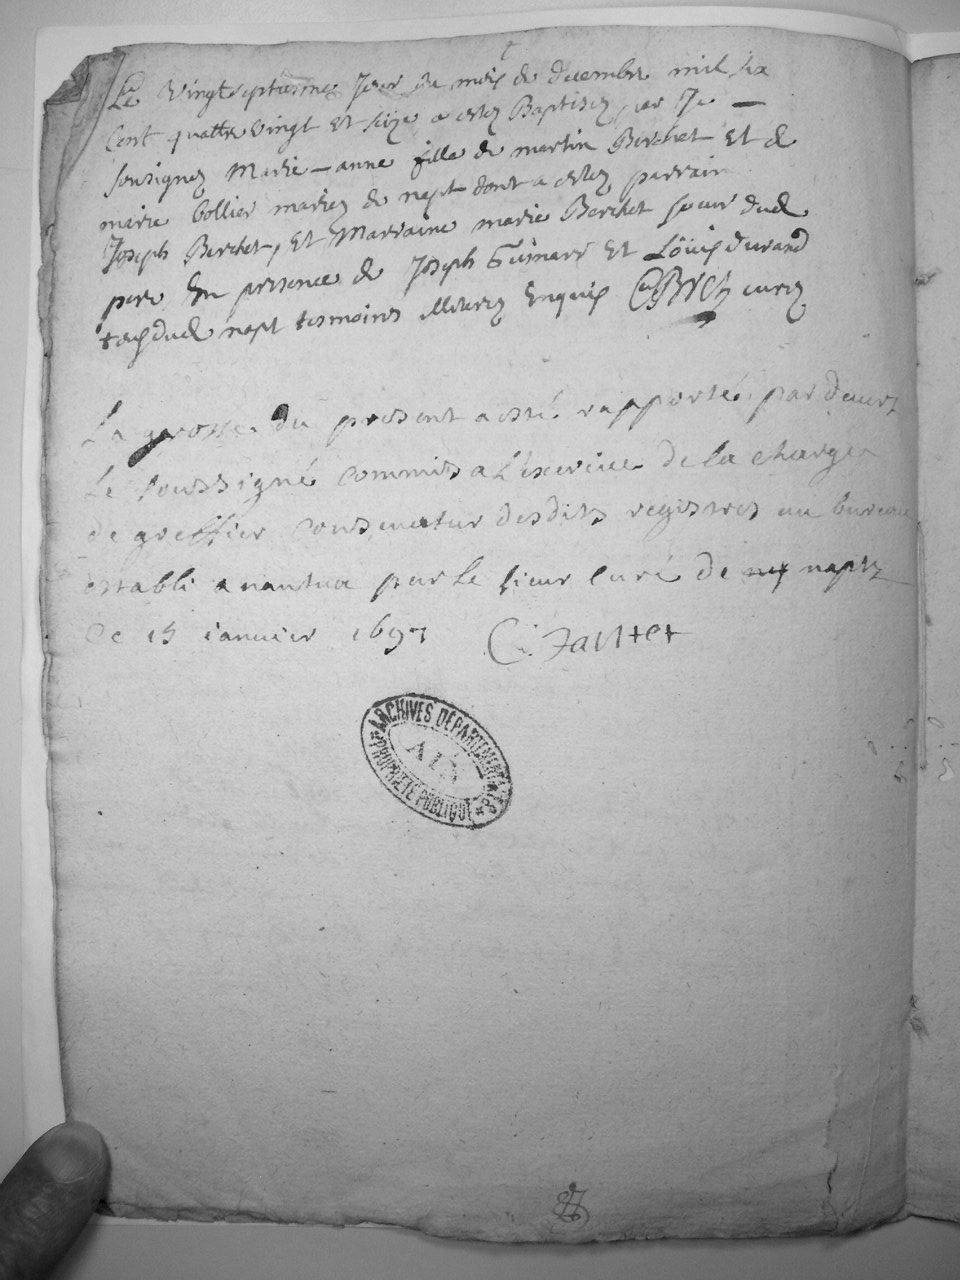 Le Vingtseptiesme Jour du mois de decembre mil six
Cent quattre vingt et seize a estez Baptisez par Je
sousignez Marie-anne fille de martin Berchet Et de
marie bollier mariez de napt dont a estez parrain
Joseph Berchet, Et Marraine marie Berchet soeur dud
pere En presence de Joseph Gûinard Et Loûis durand
tous dud napt tesmoins illiterez Enquis curez
La grosse du present a esté rapporté par devant
le soussigné commis a l'exercice de la charge
de greffier conservateur desdits registres au bureau
establi a nantua par le sieur curé de napt
ce 15 ianvier 1697
ARCHIVES DÉPARTEMENTALES
AIN
PROPRIÉTÉ PUBLIQUE